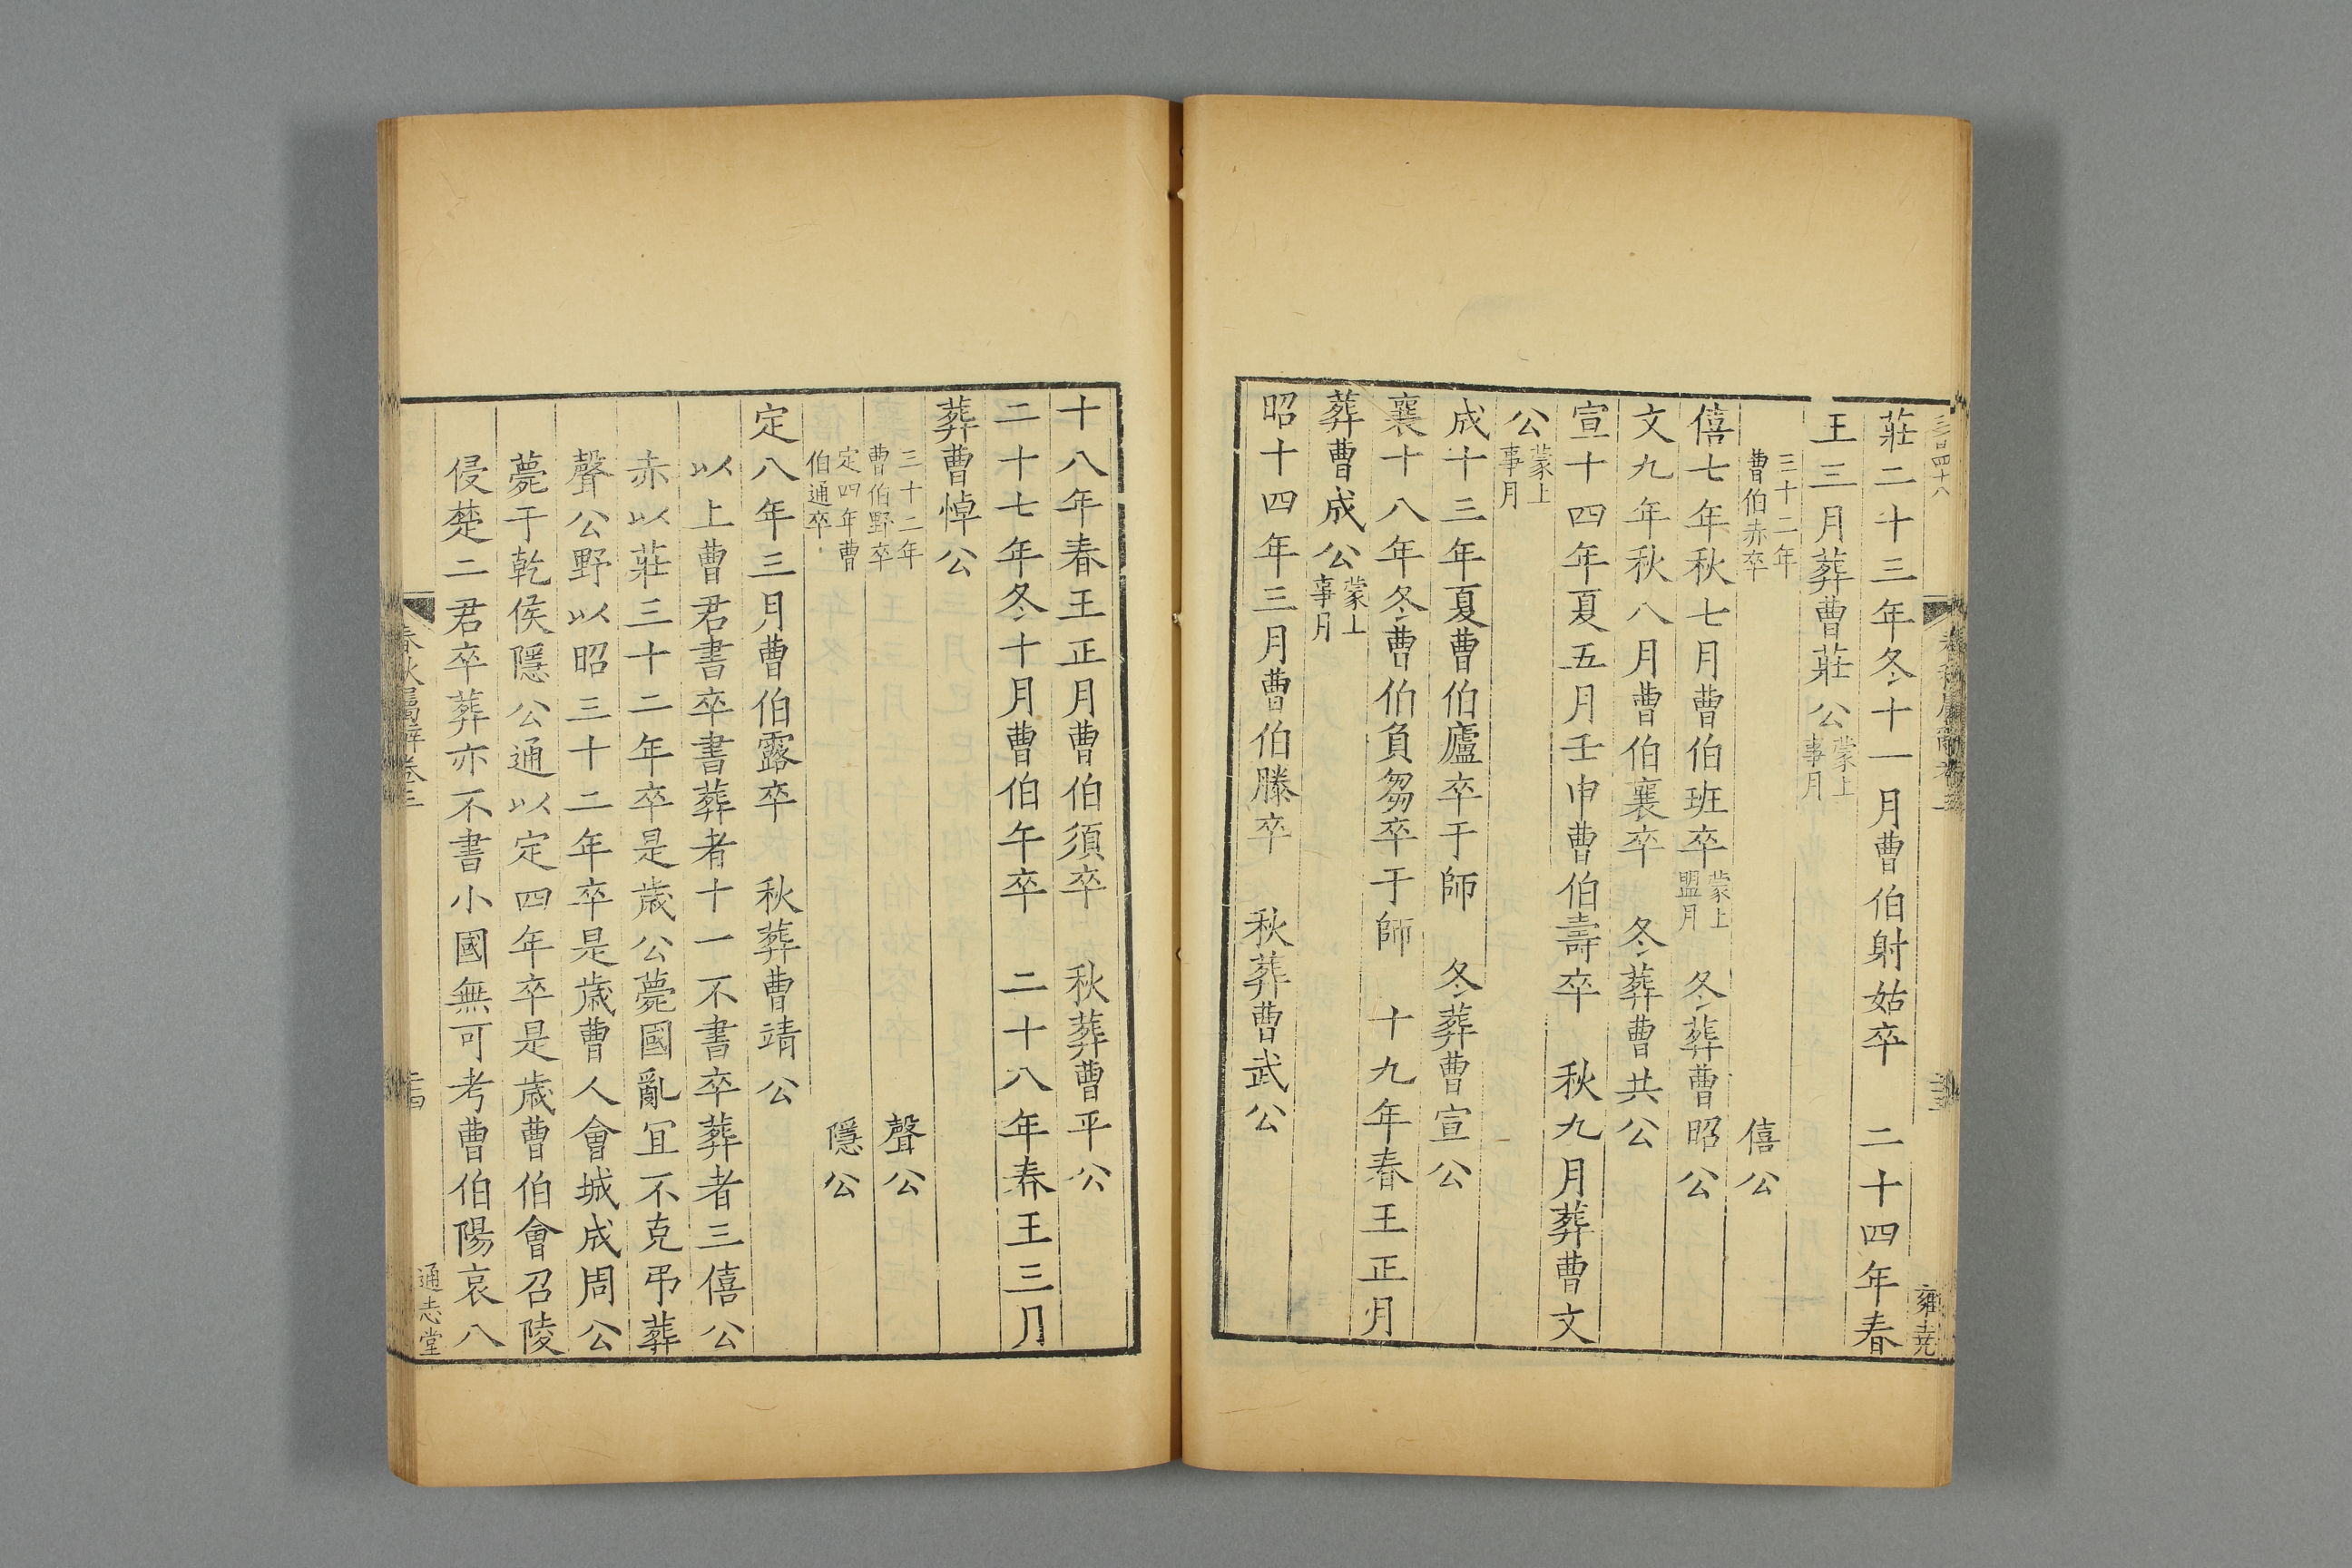 莊二十三年冬十一月曹伯射姑卒　二十四年春
王三月葬曹莊公蒙上事月
三十二年曹伯赤卒　僖公
僖七年秋七月曹伯班卒蒙上盟月　冬葬曹昭公
文九年秋八月曹伯襄卒　冬葬曹共公
宣十四年夏五月壬申曹伯壽卒　秋九月葬曹文
公蒙上事月
成十三年夏曹伯廬卒于師　冬葬曹宣公
襄十八年冬曹伯負芻卒于師　十九年春王正月
葬曹成公蒙上事月
昭十四年三月曹伯滕卒　秋葬曹武公
十八年春王正月曹伯須卒　秋葬曹平公
二十七年冬十月曹伯午卒　二十八年春王三月
葬曹悼公
三十二年曹伯野卒　聲公
定四年曹伯通卒　隱公
定八年三月曹伯露卒　秋葬曹靖公
以上曹君書卒書葬者十一不書卒葬者三僖公
赤以莊三十二年卒是歲公薨國亂冝不克弔葬
聲公野以昭三十二年卒是歲曹人會城成周公
薨于乾侯隱公通以定四年卒是歲曹伯會召陵
侵楚二君卒葬亦不書小國無可考曹伯陽哀八
春秋屬辭卷三
通志堂